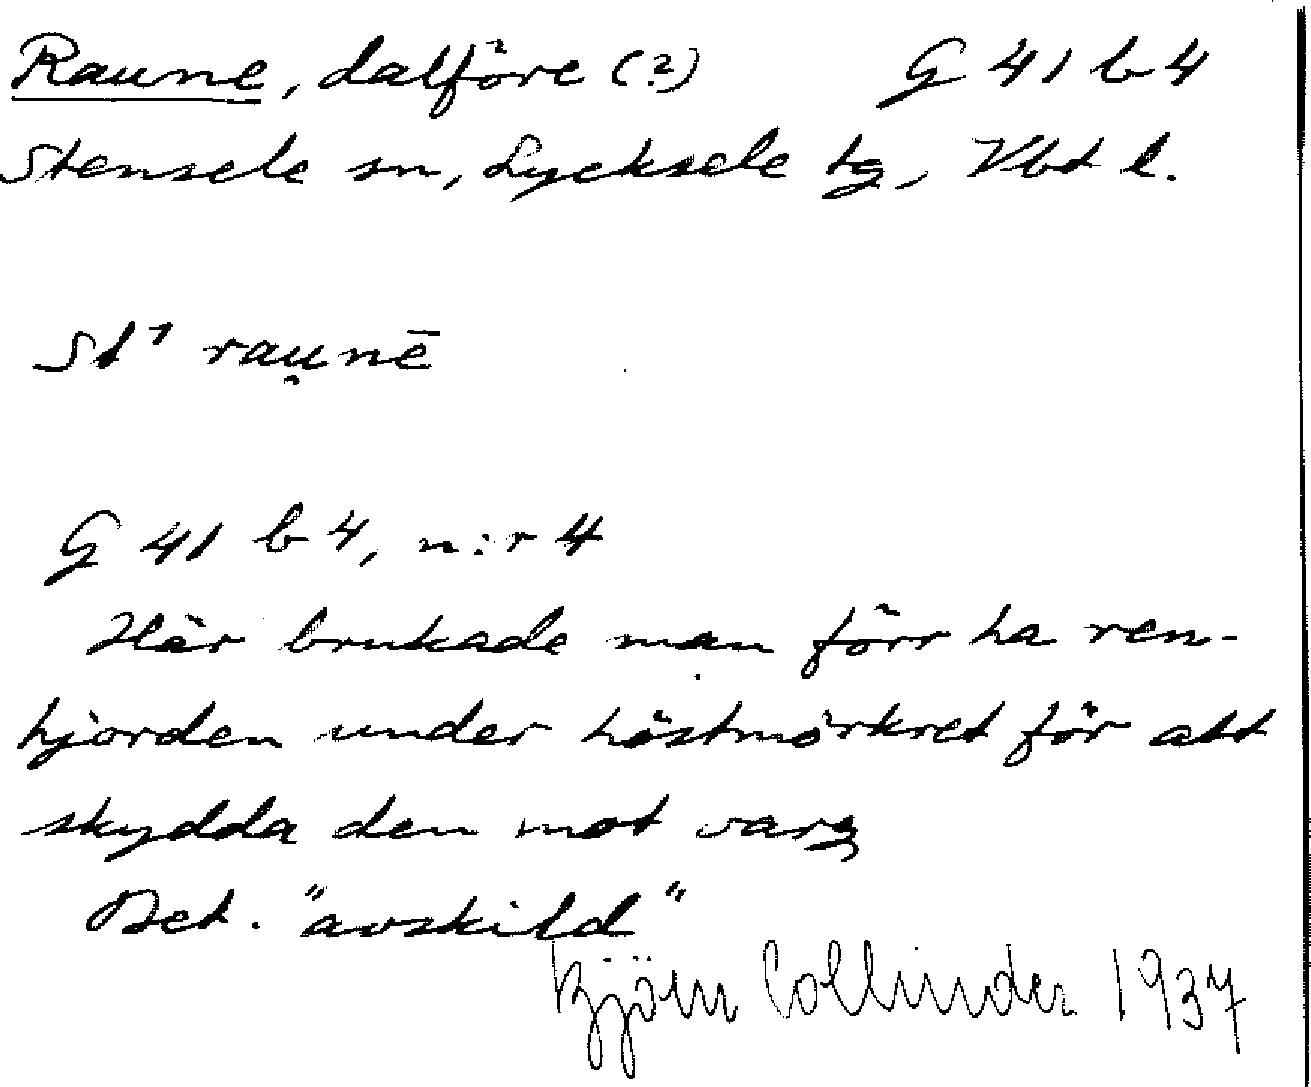 Raune, dalföre (?) G 41 b 4
Stensele sn, Lycksele tg, Vbt l.
St¹ rau̯nē
G 41 b 4, n:r 4
Här brukade man förr ha ren-
hjorden under höstmörkret för att
skydda den mot varg
Bet. "avskild"
Björn Collinder 1937